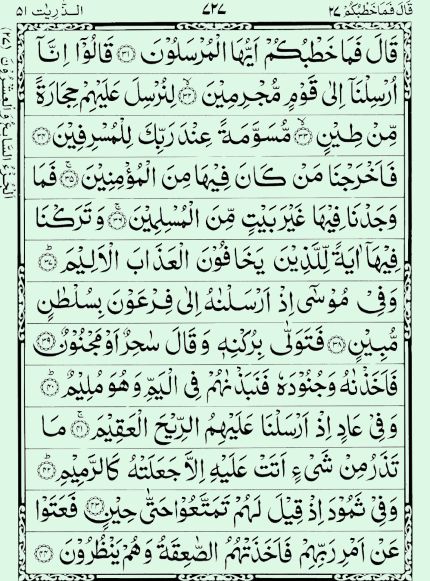 قَالَ فَمَا خَطْبُكُمْ ٢٧
٧٢٧
الذّٰرِيٰت ٥١
قَالَ فَمَا خَطْبُكُمْ اَيُّهَا الْمُرْسَلُوْنَ ﴿٣١﴾ قَالُوْٓا اِنَّآ
اُرْسِلْنَآ اِلٰى قَوْمٍ مُّجْرِمِيْنَ ﴿٣٢﴾ لِنُرْسِلَ عَلَيْهِمْ حِجَارَةً
مِّنْ طِيْنٍ ﴿٣٣﴾ مُّسَوَّمَةً عِنْدَ رَبِّكَ لِلْمُسْرِفِيْنَ ﴿٣٤﴾
فَاَخْرَجْنَا مَنْ كَانَ فِيْهَا مِنَ الْمُؤْمِنِيْنَ ﴿٣٥﴾ فَمَا
وَجَدْنَا فِيْهَا غَيْرَ بَيْتٍ مِّنَ الْمُسْلِمِيْنَ ﴿٣٦﴾ وَتَرَكْنَا
فِيْهَآ اٰيَةً لِّلَّذِيْنَ يَخَافُوْنَ الْعَذَابَ الْاَلِيْمَ ﴿٣٧﴾
وَفِيْ مُوْسٰٓى اِذْ اَرْسَلْنٰهُ اِلٰى فِرْعَوْنَ بِسُلْطٰنٍ
مُّبِيْنٍ ﴿٣٨﴾ فَتَوَلّٰى بِرُكْنِهٖ وَقَالَ سٰحِرٌ اَوْ مَجْنُوْنٌ ﴿٣٩﴾
فَاَخَذْنٰهُ وَجُنُوْدَهٗ فَنَبَذْنٰهُمْ فِى الْيَمِّ وَهُوَ مُلِيْمٌ ﴿٤٠﴾
وَفِيْ عَادٍ اِذْ اَرْسَلْنَا عَلَيْهِمُ الرِّيْحَ الْعَقِيْمَ ﴿٤١﴾ مَا
تَذَرُ مِنْ شَيْءٍ اَتَتْ عَلَيْهِ اِلَّا جَعَلَتْهُ كَالرَّمِيْمِ ﴿٤٢﴾
وَفِيْ ثَمُوْدَ اِذْ قِيْلَ لَهُمْ تَمَتَّعُوْا حَتّٰى حِيْنٍ ﴿٤٣﴾ فَعَتَوْا
عَنْ اَمْرِ رَبِّهِمْ فَاَخَذَتْهُمُ الصّٰعِقَةُ وَهُمْ يَنْظُرُوْنَ ﴿٤٤﴾
اَلْجُزْءُ السَّابِعُ وَالْعِشْرُوْنَ (٢٧)